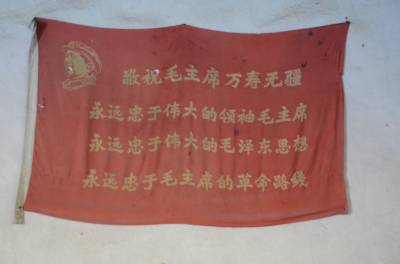 敬祝毛主席万寿无疆
永远忠于伟大的领袖毛主席
永远忠于伟大的毛泽东思想
永远忠于毛主席的革命路线